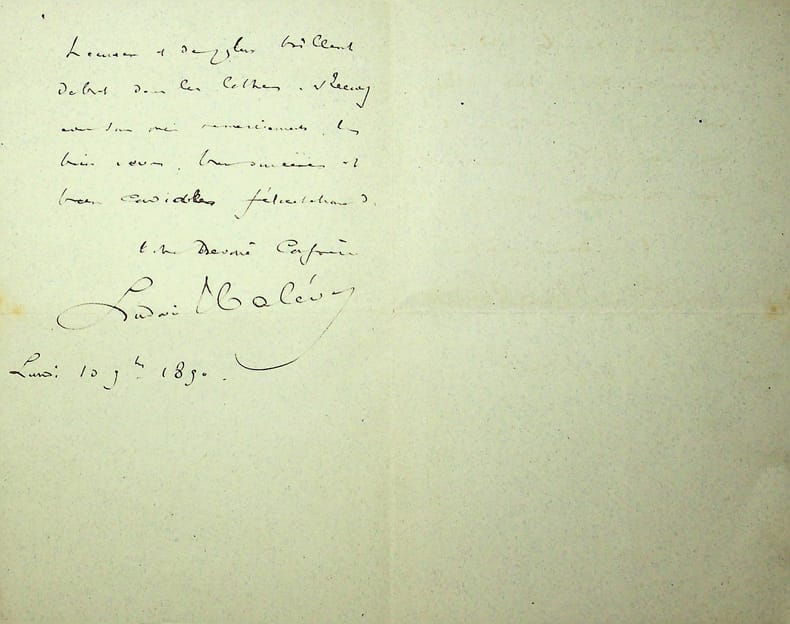 heureux et du plus brillant
début dans les lettres. Recevez
avec tous mes remerciements, les
bien vives, bien sincères et
bien cordiales félicitations
Votre Dévoué Confrère
Ludovic Halévy
Lundi 10 9bre 1890.